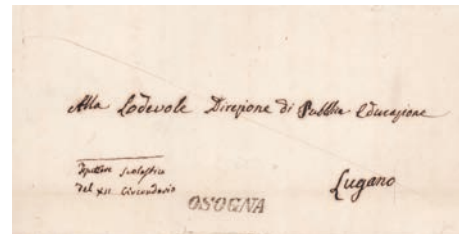 Alla Lodevole Direzione di Pubblica Educazione
Ispettore Scolastico
del XII Circondario
Lugano
OSOGNA